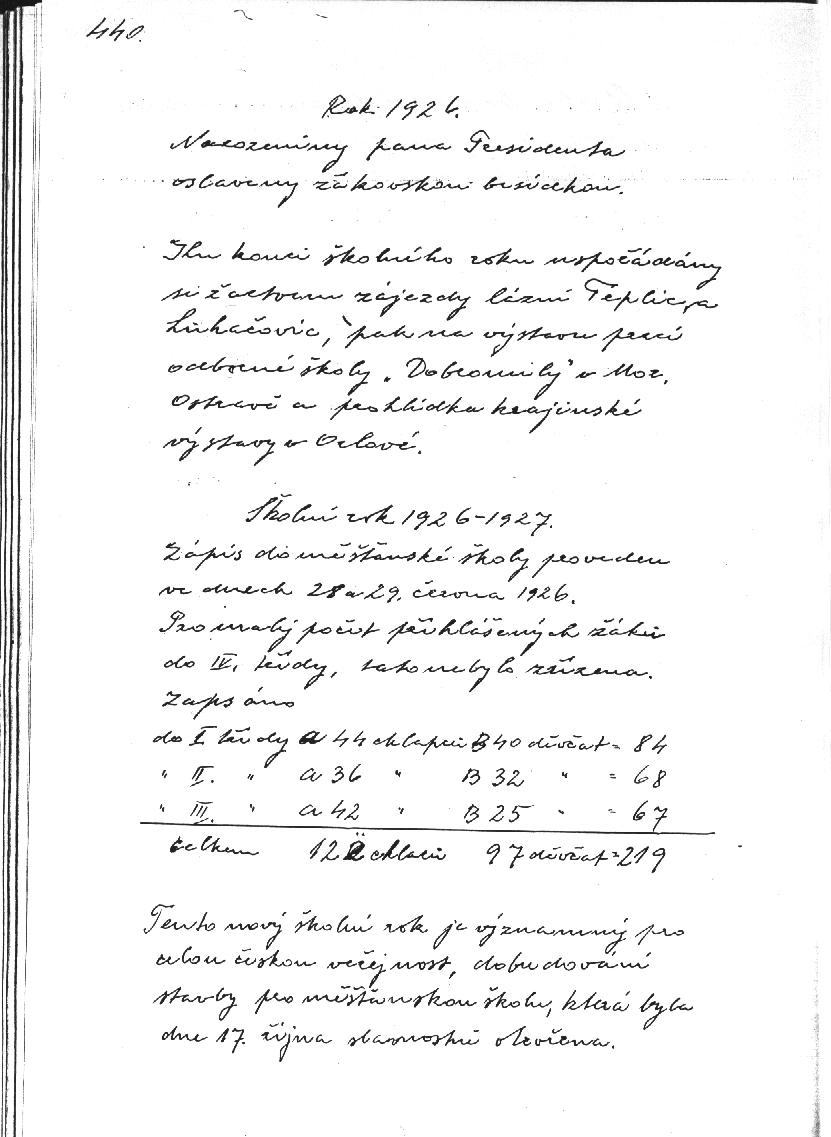 440.
Rok 1926.
Narozeniny pana Presidenta
oslaveny žákovskou besídkou.
Ku konci školního roku uspořádány
se žactvem zájezdy lázní Teplic, a
Luhačovic, pak na výstavu prací
odborné školy „Dobromily" v Mor.
Ostravě a prohlídka krajinské
výstavy v Orlové.
Školní rok 1926-1927.
Zápis do měšťanské školy proveden
ve dnech 28 a 29. června 1926.
Pro malý počet přihlášených žáků
do IV. třídy, tato nebyla zřízena.
Zapsáno
do I třídy a 44 chlapců B 40 děvčat = 84
" II. " a 36 " B 32 " = 68
" III. " a 42 " B 25 " = 67
celkem 122 chlapců 97 děvčat = 219
Tento nový školní rok je významný pro
celou českou veřejnost, dobudování
stavby pro měšťanskou školu, která byla
dne 17. října slavnostně otevřena.